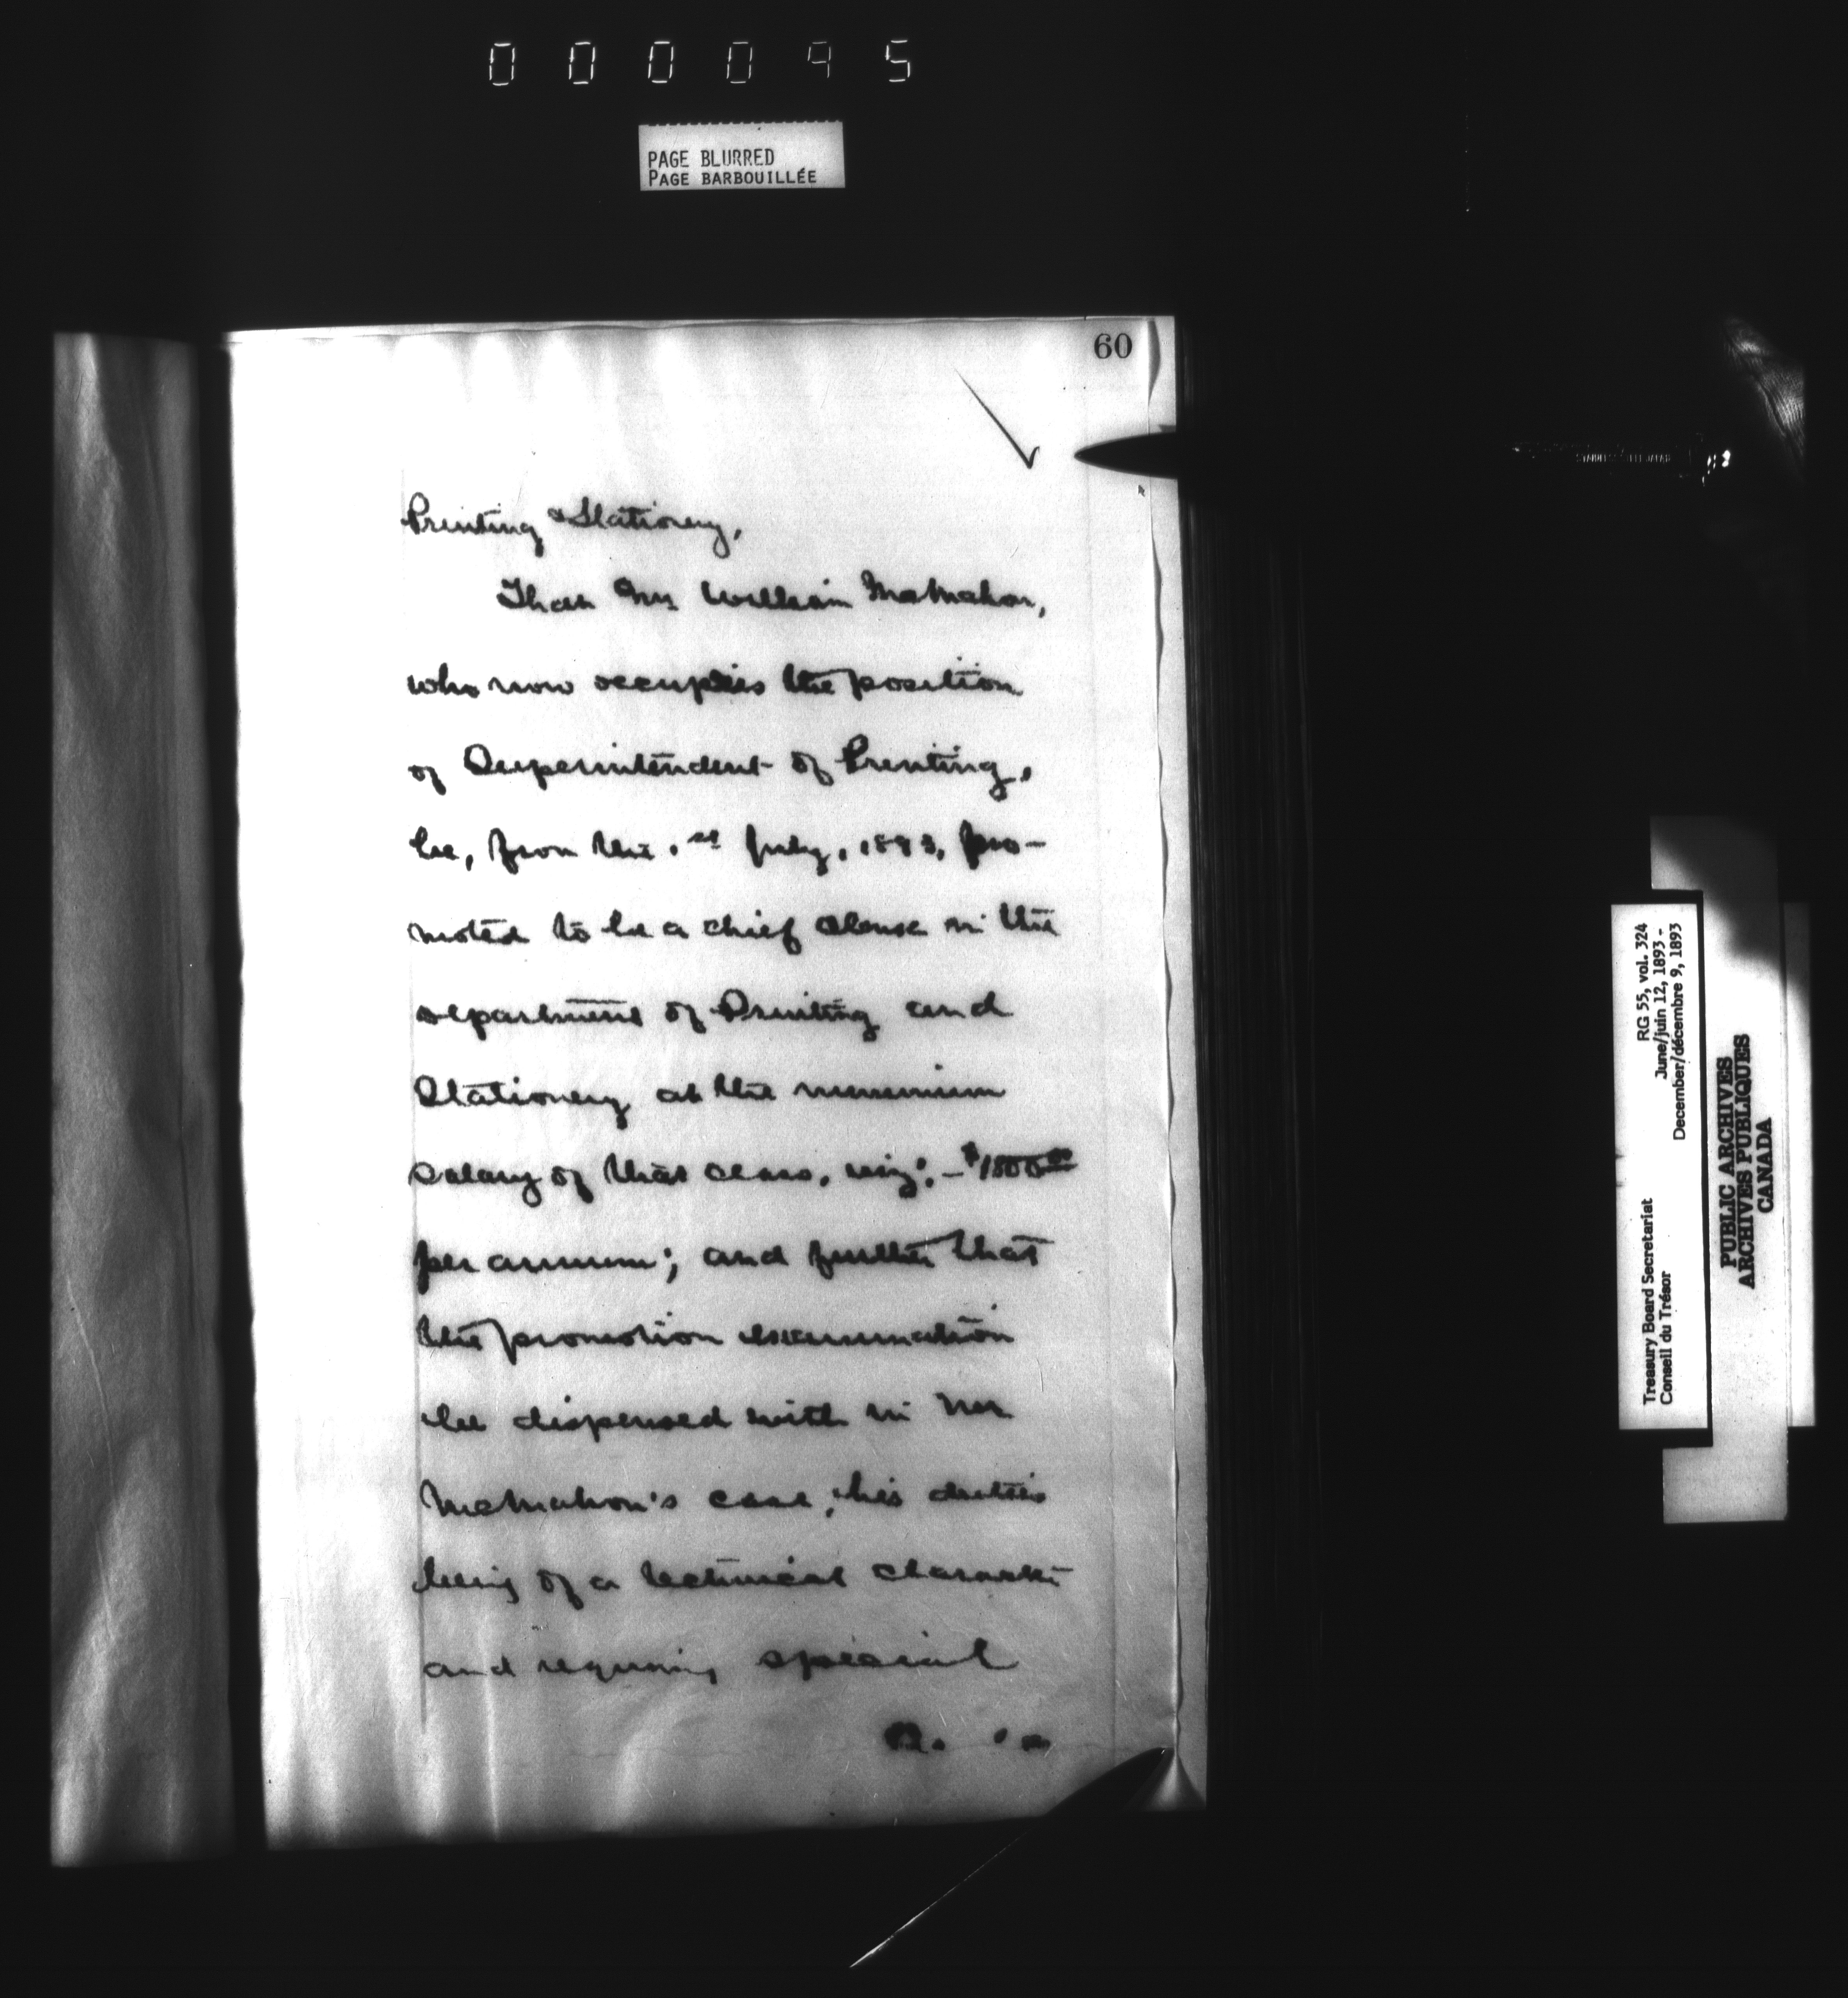 000095
PAGE BLURRED
PAGE BARBOUILLÉE
60
Printing & Stationery,
That Mr William McMahon,
who now occupies the position
of Superintendent of Printing,
be, from the 1st July, 1893, pro-
moted to be a chief clerk in the
department of Printing and
Stationery at the minimum
salary of that class, viz; - $1800 00
per annum; and further that
the promotion examination
be dispensed with in Mr
McMahon's case, his duties
being of a technical character
and requiring special
Treasury Board Secretariat RG 55, vol. 324
Conseil du Trésor June/juin 12, 1893 -
December/décembre 9, 1893
PUBLIC ARCHIVES
ARCHIVES PUBLIQUES
CANADA